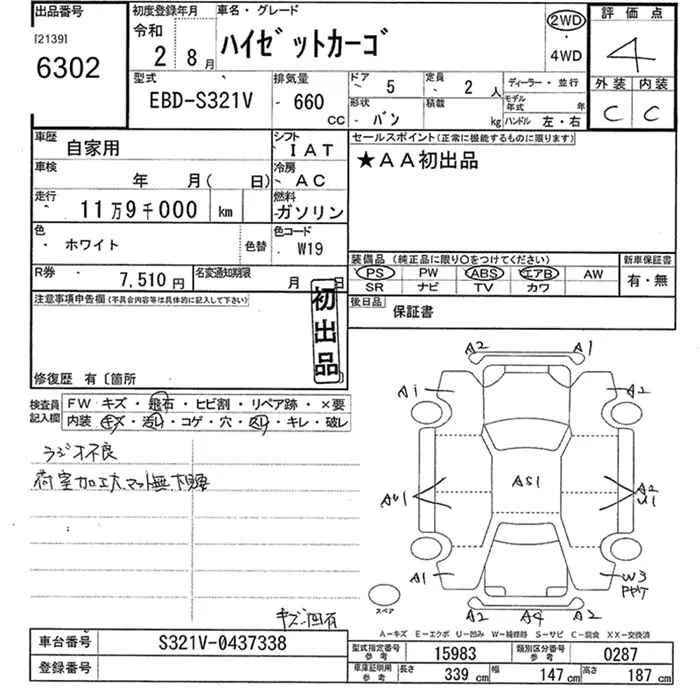 出品番号 初度登録年月 車名・グレード 評価点
[2139] 令和 2WD
6302 2 8月 ハイゼットカーゴ ・ 4
4WD
型式 排気量 ドア 5 定員 2 人 ディーラー・並行 外装 内装
EBD-S321V 660 cc 形状 バン 積載 kg モデル年式 年 C C
ハンドル 左・右
車歴 自家用 シフト IAT セールスポイント(正常に機能するものに限ります)
車検 年 月( 日) 冷房 AC ★AA初出品
走行 11万9千000 km 燃料 ガソリン
色 ホワイト 色替 色コード W19
装備品 (純正品に限り○をつけてください) 新車保証書
PS PW ABS エアB AW 有・無
SR ナビ TV カワ
R券 7,510円 名変通知期限 月 日
後日品 保証書
注意事項申告欄 (不具合内容等は具体的に記入して下さい)
初出品
修復歴 有〔箇所
検査員記入欄 FW キズ・飛石・ヒビ割・リペア跡・×要
内装 キズ・汚レ・コゲ・穴・スレ・キレ・破レ
ラジオ不良
荷室加工大
A2 A1
A1 A2
AU1 AS1 A2
U1
A1 W3
A2 A4 A2
スペア
キズ凹有
A-キズ E-エクボ U-凹み W-補修跡 S-サビ C-腐食 XX-交換済
車台番号 S321V-0437338
登録番号
型式指定番号 参考 15983 類別区分番号 参考 0287
車庫証明用 参考 長さ 339 cm 幅 147 cm 高さ 187 cm